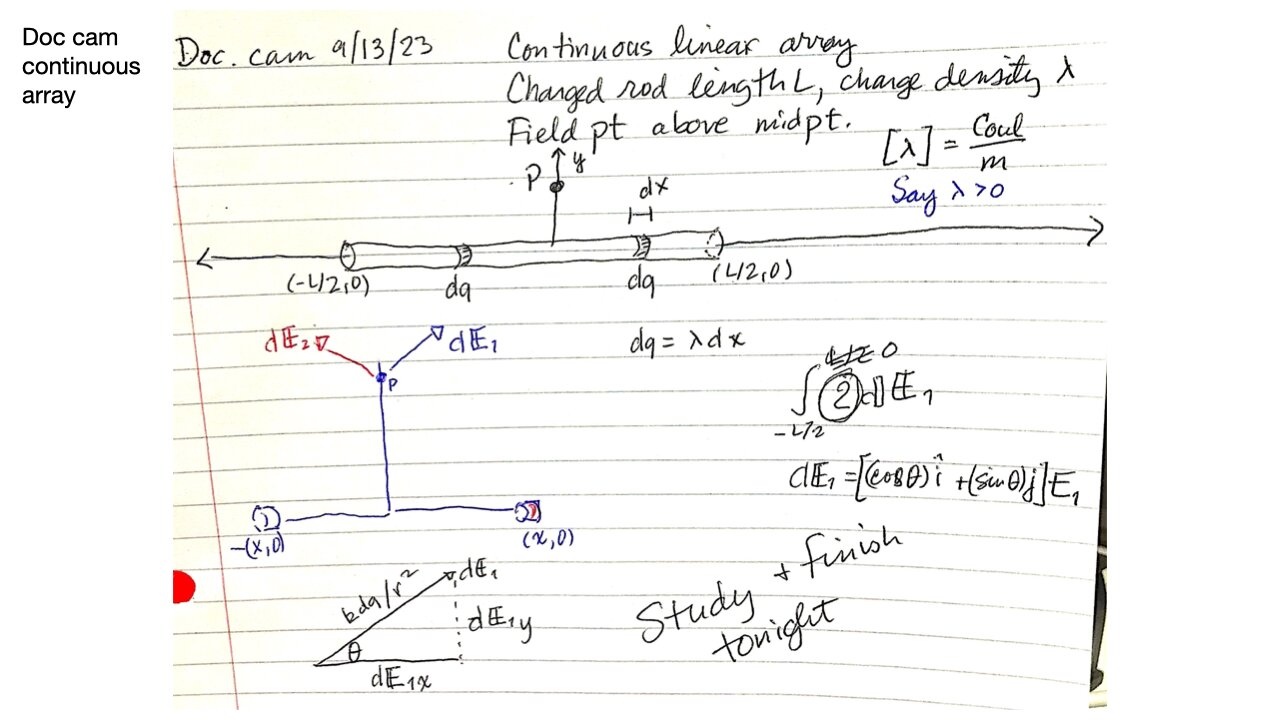 Doc cam
continuous
array
Doc. cam 9/13/23
Continuous linear array
Charged rod length L, charge density λ
Field pt above midpt.
[λ] = Coul/m
Say λ >0
P
y
dx
(-L/2,0)
dq
dq
(L/2,0)
dE₂
dE₁
P
dq = λdx
-(x,0)
(x,0)
∫ 2 dE₁
-L/2
0
dE₁ = [(cosθ)î + (sinθ)ĵ] E₁
kdq/r²
dE₁
dE₁y
θ
dE₁x
Study + finish
tonight
1
2